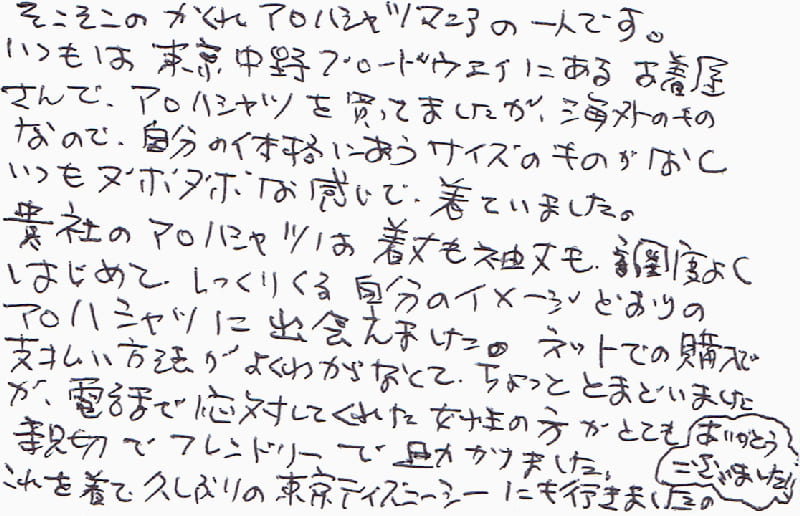 そこそこのかくれアロハシャツマニアの一人です。
いつもは東京中野ブロードウェイにあるお着屋
さんで、アロハシャツを買ってましたが、海外のもの
なので、自分の体格にあうサイズのものがなく
いつもダボダボな感じで、着ていました。
貴社のアロハシャツは着丈も袖丈も、調度よく
はじめて、しっくりくる自分のイメージどおりの
アロハシャツに出会えました。ネットでの購入で
支払い方法がよくわからなくて、ちょっととまどいました
が、電話で応対してくれた女性の方がとても
親切でフレンドリーで助かりました。
ありがとう
ございました!!
これを着て久しぶりの東京ディズニーシーにも行きました。